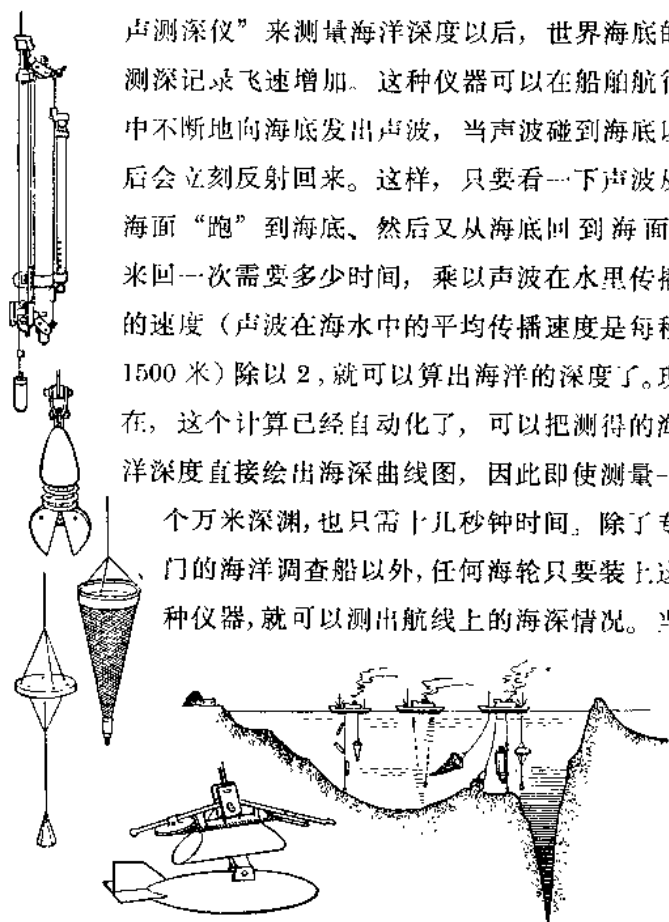 声测深仪”来测量海洋深度以后，世界海底的
测深记录飞速增加。这种仪器可以在船舶航行
中不断地向海底发出声波，当声波碰到海底以
后会立刻反射回来。这样，只要看一下声波从
海面“跑”到海底、然后又从海底回到海面
来回一次需要多少时间，乘以声波在水里传播
的速度（声波在海水中的平均传播速度是每秒
1500 米）除以 2，就可以算出海洋的深度了。现
在，这个计算已经自动化了，可以把测得的海
洋深度直接绘出海深曲线图，因此即使测量一
个万米深渊，也只需十几秒钟时间。除了专
门的海洋调查船以外，任何海轮只要装上这
种仪器，就可以测出航线上的海深情况。当